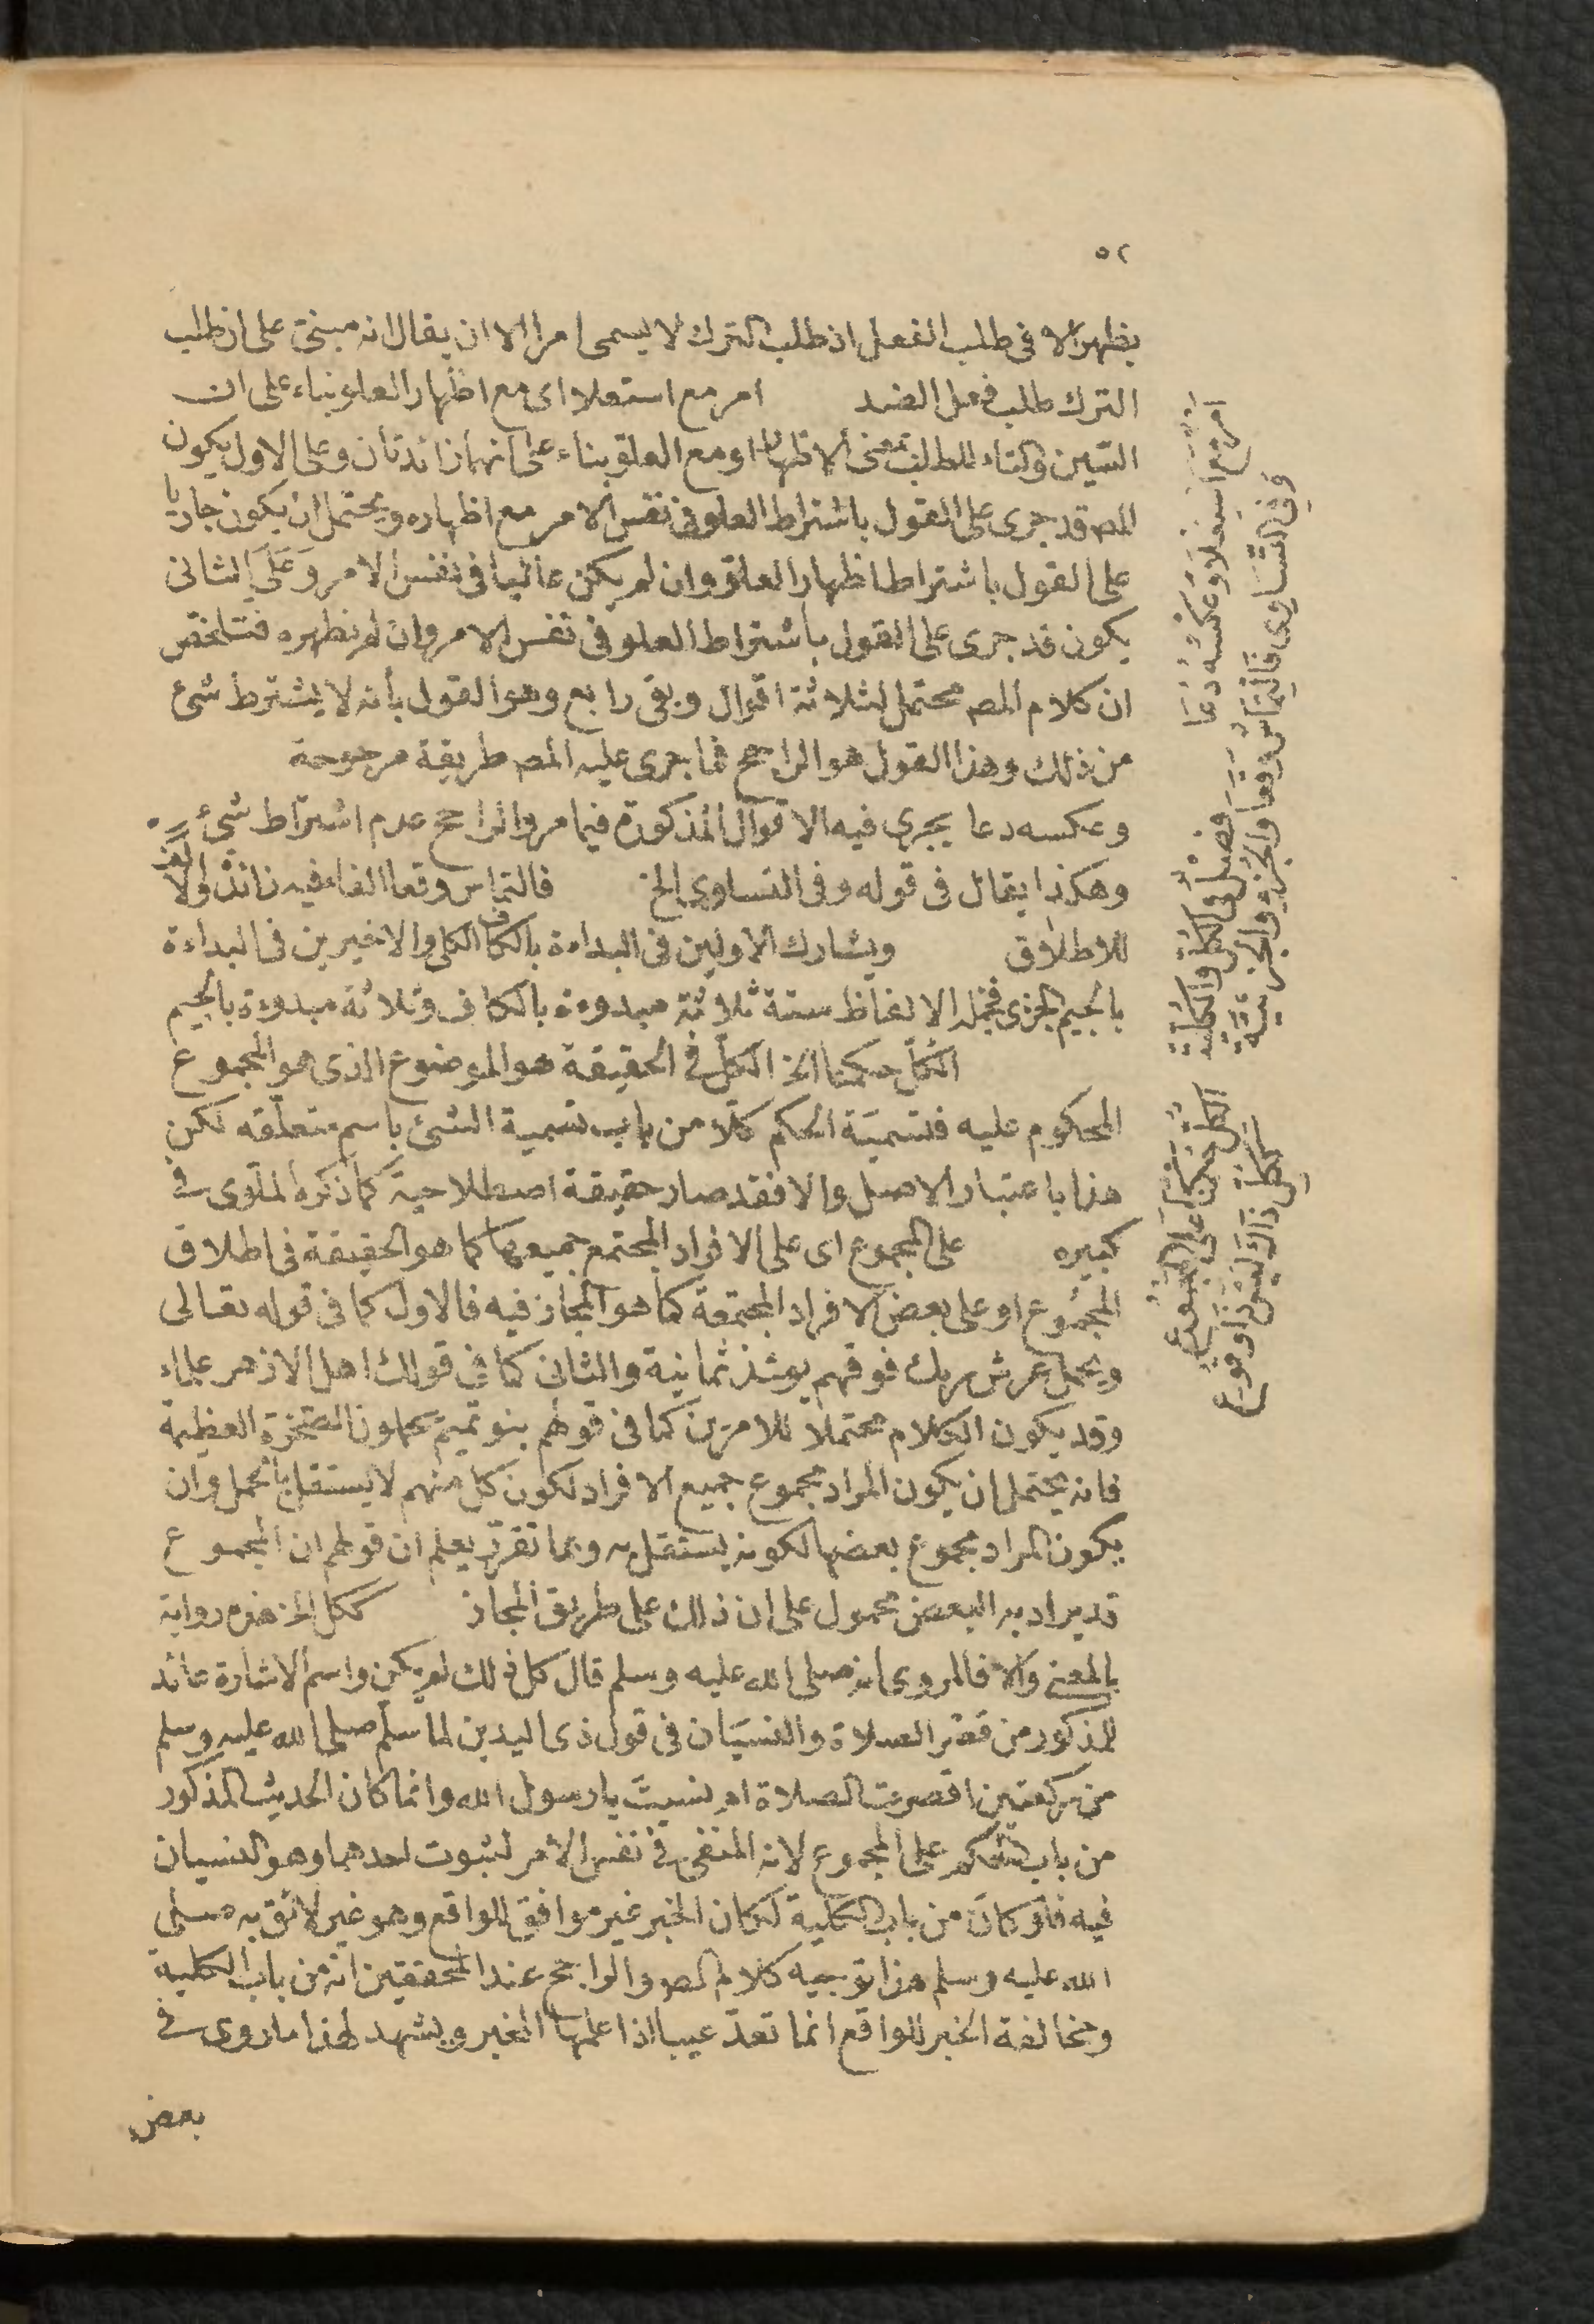 ٥٢
يظهر الا فى طلب الفعل اذ طلب الترك لا يسمى امرا الا ان يقال انه مبنى على ان طلب
الترك طلب فعل الضد امر مع استعلا اى مع اظهار العلو بناء على ان
السين والتاء للطلب بمعنى الاظهار او مع العلو بناء على انهما زائدتان وعلى الاول يكون
المصه قد جرى على القول باشتراط العلو فى نفس الامر مع اظهاره ويحتمل ان يكون جاريا
على القول باشتراط اظهار العلو وان لم يكن عاليا فى نفس الامر وعلى الثانى
يكون قد جرى على القول باشتراط العلو فى نفس الامر وان لم يظهره فتلخص
ان كلام المصه محتمل لثلاثة اقوال وبقى رابع وهو القول بأنه لا يشترط شئ
من ذلك وهذا القول هو الراجح فما جرى عليه المصه طريقة مرجوحة
وعكسه دعا يجرى فيه الاقوال المذكورة فيما مر والراجح عدم اشتراط شئ
وهكذا يقال فى قوله وفى التساوى الخ فالتماس وقعا الفاء فيه زائدة والالف
للاطلاق ويشارك الاولين فى البداءة بالكاف الكلى والاخيرين فى البداءة
بالجيم الجزى فجملة الالفاظ ستة ثلاثة مبدوءة بالكاف وثلاثة مبدوءة بالجيم
الكل حكمنا الخ الكل فى الحقيقة هو الموضوع الذى هو المجموع
المحكوم عليه فتسمية الحكم كلا من باب تسمية الشئ باسم متعلقه لكن
هذا باعتبار الاصل والا فقد صار حقيقة اصطلاحية كما ذكره الملوى فى
كبيره على المجموع اى على الافراد المجتمع جميعها كما هو الحقيقة فى اطلاق
المجموع او على بعض الافراد المجتمعة كما هو المجاز فيه فالاول كما فى قوله تعالى
ويحمل عرش ربك فوقهم يومئذ ثمانية والثانى كما فى قولك اهل الازهر علماء
وقد يكون الكلام محتملا للامرين كما فى قولهم بنو تميم يحملون الصخرة العظيمة
فانه يحتمل ان يكون المراد مجموع جميع الافراد لكون كل منهم لا يستقل بالحمل وان
يكون المراد مجموع بعضها لكونه يستقل به وبما تقرر يعلم ان قولهم ان المجموع
قد يراد به البعض محمول على ان ذلك على طريق المجاز ككل الخ هذه رواية
بالمعنى والا فالمروى انه صلى الله عليه وسلم قال كل ذلك لم يكن واسم الاشارة عائد
للمذكور من قصر الصلاة والنسيان فى قول ذى اليدين لما سلم صلى الله عليه وسلم
من ركعتين اقصرت الصلاة ام نسيت يا رسول الله وانما كان الحديث المذكور
من باب الحكم على المجموع لانه المنفى فى نفس الامر لثبوت احدهما وهو النسيان
فيه فلو كان من باب الكلية لكان الخبر غير موافق للواقع وهو غير لائق به صلى
الله عليه وسلم هذا توجيه كلام المصه والراجح عند المحققين انه من باب الكلية
ومخالفة الخبر للواقع انما تعد عيبا اذا علمها المخبر ويشهد لهذا ما روى فى
بعض
امر مع استعلا وعكسه دعا
وفى التساوى فالتماس وقعا
فصل فى الكل والكلية
والجزء والجزئية
الكل حكمنا على المجموع
ككل ذاك ليس ذا وقوع